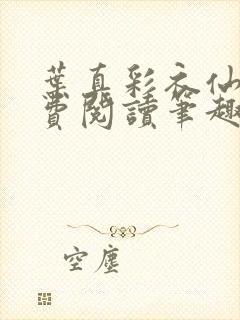 葉真彩衣仙
費閱讀筆趣
空塵